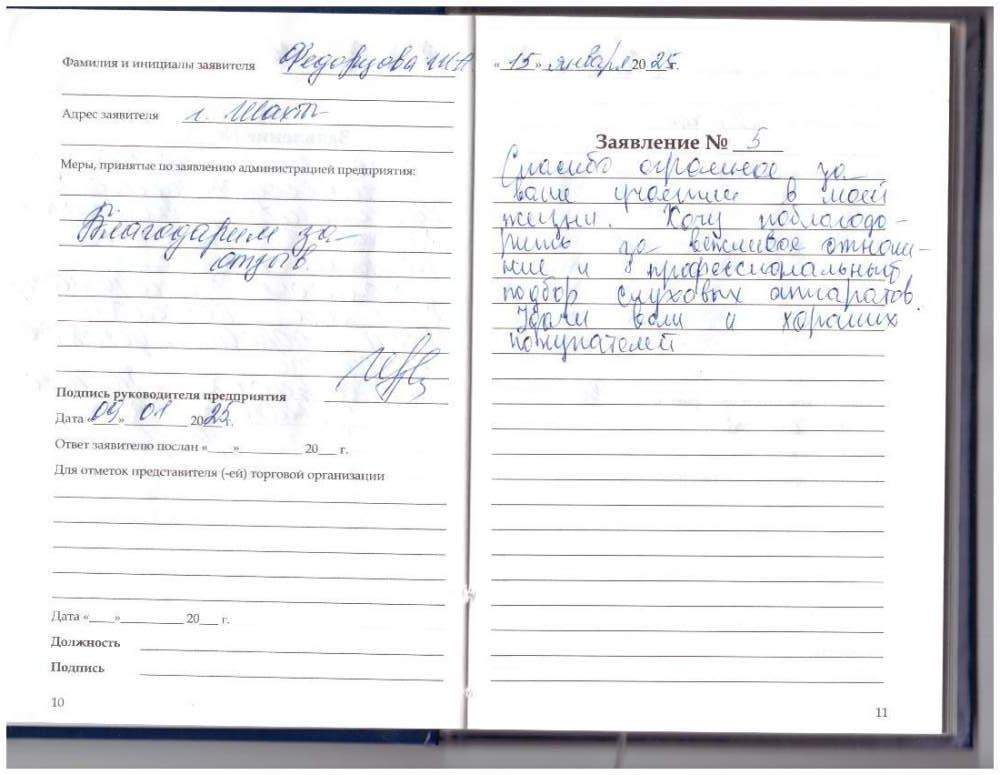 Фамилия и инициалы заявителя Федорцова И А
Адрес заявителя г. Шахты
Меры, принятые по заявлению администрацией предприятия:
Благодарим за
отзыв.
Подпись руководителя предприятия
Дата «09» 01 2025г.
Ответ заявителю послан «____»__________ 20___ г.
Для отметок представителя (-ей) торговой организации
Дата «____»__________ 20___ г.
Должность
Подпись
10
«15» января 2025г.
Заявление № 5
Спасибо огромное за
ваше участие в моей
жизни. Хочу поблагода-
рить за вежливое отноше-
ние и профессиональный
подбор слуховых аппаратов.
Удачи вам и хороших
покупателей
11